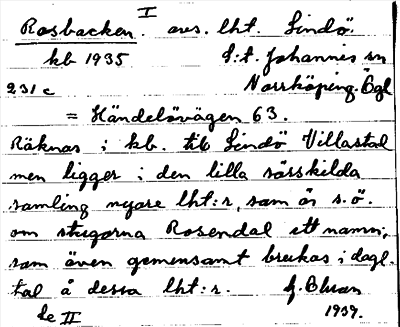 I
Rosbacken. avs. lht. Lindö.
kb 1935 S:t Johannis sn
231 c Norrköping. Ögl
= Händelövägen 63.
Räknas i kb. till Lindö Villastad
men ligger i den lilla särskilda
samling nyare lht:r, som är s.ö.
om stugorna Rosendal ett namn,
som även gemensamt brukas i dagl.
tal å dessa lht:r.
1937.
Se II